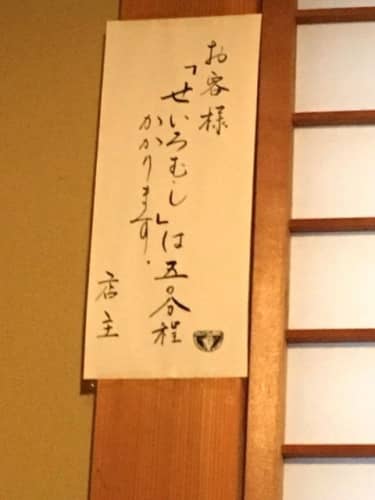 お客様
「せいろむし」は五〇分程
かかります。
店主